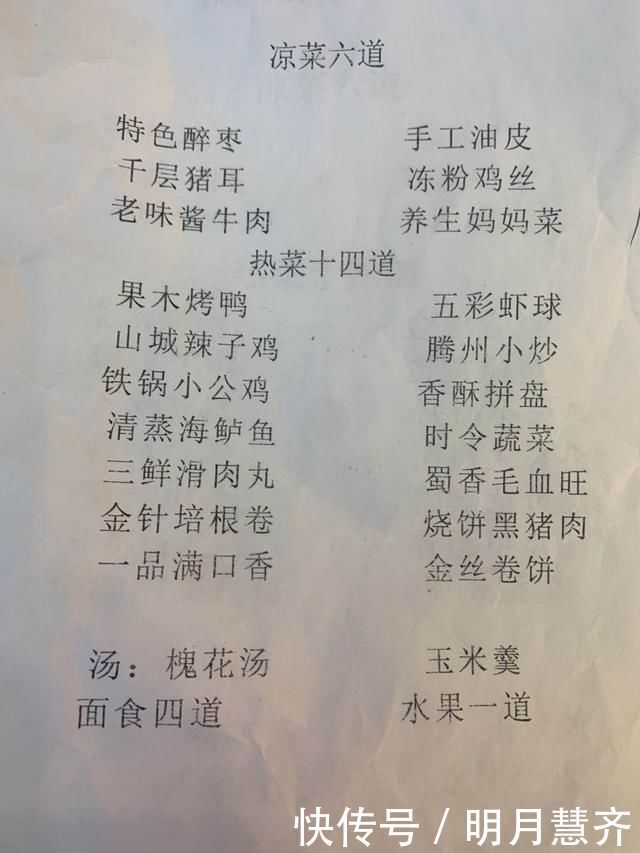 凉菜六道
特色醉枣 手工油皮
千层猪耳 冻粉鸡丝
老味酱牛肉 养生妈妈菜
热菜十四道
果木烤鸭 五彩虾球
山城辣子鸡 腾州小炒
铁锅小公鸡 香酥拼盘
清蒸海鲈鱼 时令蔬菜
三鲜滑肉丸 蜀香毛血旺
金针培根卷 烧饼黑猪肉
一品满口香 金丝卷饼
汤：槐花汤 玉米羹
面食四道 水果一道
快传号 / 明月慧齐